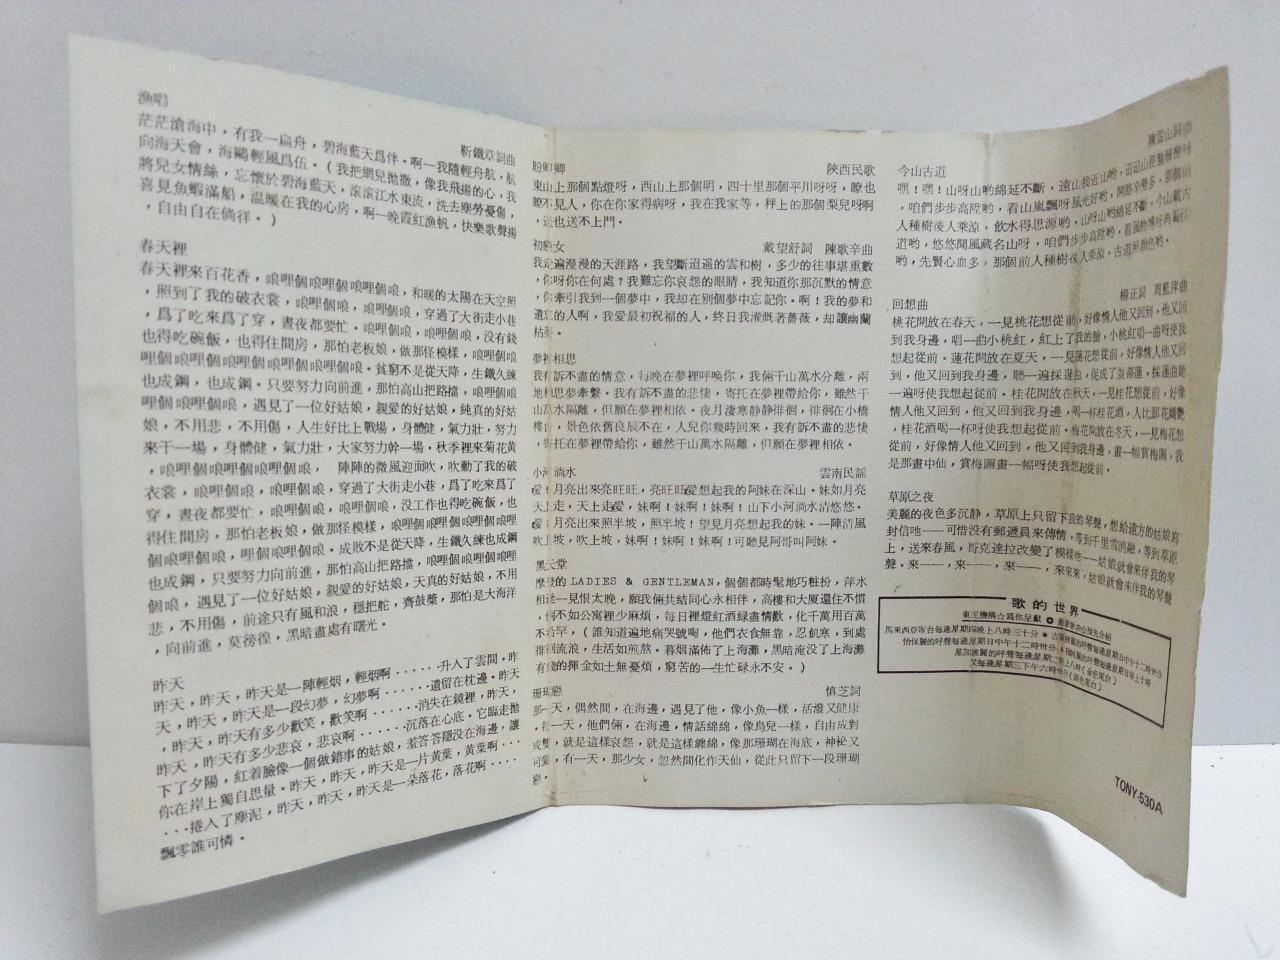 漁唱
靳鐵章詞曲
茫茫滄海中，有我一扁舟，碧海藍天爲伴。啊一我隨輕舟航，航
向海天會，海鷗輕風爲伍。（我把網兒拋撒，像我飛揚的心，我
將兒女情絲，忘懷於碧海藍天，滾滾江水東流，洗去塵勞憂傷，
喜見魚蝦滿船，温暖在我的心房，啊一晚霞紅漁帆，快樂歌聲揚
，自由自在倘徉。)
春天裡
春天裡來百花香，啷哩個啷哩個啷哩個啷，和暖的太陽在天空照
，照到了我的破衣裳，啷哩個啷，啷哩個啷，穿過了大街走小巷
，爲了吃來爲了穿，晝夜都要忙。啷哩個啷，啷哩個啷，没有錢
也得吃碗飯，也得住間房，那怕老板娘，做那怪模樣，啷哩個啷
哩個啷哩個啷哩個啷哩個啷哩個啷。貧窮不是從天降，生鐵久練
也成鋼，也成鋼。只要努力向前進，那怕高山把路擋，啷哩個啷
哩個啷哩個啷，遇見了一位好姑娘，親愛的好姑娘，純真的好姑
娘，不用悲，不用傷，人生好比上戰場，身體健，氣力壯，努力
來干一場，身體健，氣力壯，大家努力幹一場。秋季裡來菊花黃
，啷哩個啷哩個啷哩個啷， 陣陣的微風迎面吹，吹動了我的破
衣裳，啷哩個啷，啷哩個啷，穿過了大街走小巷，爲了吃來爲了
穿，晝夜都要忙，啷哩個啷，啷哩個啷，没工作也得吃碗飯，也
得住間房，那怕老板娘，做那怪模樣，啷哩個啷哩個啷哩個啷哩
個啷哩個啷，哩個啷哩個啷。成敗不是從天降，生鐵久練也成鋼
也成鋼，只要努力向前進，那怕高山把路擋，啷哩個啷哩個啷哩
個啷，遇見了一位好姑娘，親愛的好姑娘，天真的好姑娘，不用
悲，不用傷，前途只有風和浪，穩把舵，齊鼓槳，那怕是大海洋
，向前進，莫徬徨，黑暗盡處有曙光。
昨天
昨天，昨天，昨天是一陣輕烟，輕烟啊······升入了雲間。昨
天，昨天，昨天是一段幻夢，幻夢啊······遺留在枕邊。昨天
，昨天，昨天有多少歡笑，歡笑啊······消失在鏡裡，昨天，
昨天，昨天有多少悲哀，悲哀啊······沉落在心底。它臨走拋
下了夕陽，紅着臉像一個做錯事的姑娘，羞答答隱没在海邊，讓
你在岸上獨自思量。昨天，昨天，昨天是一片黃葉，黃葉啊···
···捲入了塵泥，昨天，昨天，昨天是一朵落花，落花啊····
飄零誰可憐。
盼
卿 陝西民歌
東山上那個點燈呀，西山上那個明，四十里那個平川呀呀，瞭也
瞭不見人，你在你家得病呀，我在我家等，秤上的那個梨兒呀啊
，送也送不上門。
初戀女 戴望舒詞 陳歌辛曲
我走遍漫漫的天涯路，我望斷迢遥的雲和樹，多少的往事堪重數
，你呀你在何處？我難忘你哀怨的眼睛，我知道你那沉默的情意
，你牽引我到一個夢中，我却在別個夢中忘記你。啊！我的夢和
遺忘的人啊，我愛最初祝福的人，終日我灌溉著薔薇，却讓幽蘭
枯萎。
夢裡相思
我有訴不盡的情意，每晚在夢裡呼喚你，我倆千山萬水分離，兩
地相思夢牽繫。我有訴不盡的悲悽，寄托在夢裡帶給你，雖然千
山萬水隔離，但願在夢裡相依。夜月淒寒静静徘徊，徘徊在小橋
樓台，景色依舊良辰不在，人兒你幾時回來，我有訴不盡的悲悽
，寄托在夢裡帶給你，雖然千山萬水隔離，但願在夢裡相依。
小河淌水 雲南民謡
愛！月亮出來亮旺旺，亮旺旺愛想起我的阿妹在深山。妹如月亮
天上走，天上走愛，妹啊！妹啊！妹啊！山下小河淌水清悠悠。
愛！月亮出來照半坡，照半坡！望見月亮想起我的妹。一陣清風
吹上坡，吹上坡，妹啊！妹啊！妹啊！可聽見阿哥叫阿妹。
黑天堂
摩登的 LADIES & GENTLEMAN，個個都時髦地巧粧扮，萍水
相逢一見恨太晚，願我倆共結同心永相伴，高樓和大厦還住不慣
，倒不如公寓裡少麻煩，每日裡燈紅酒綠盡情歡，化千萬用百萬
不希罕，（誰知道遍地痛哭號啕，他們衣食無靠，忍飢寒，到處
徘徊流浪，生活如煎熬。暮烟滿佈了上海灘，黑暗淹没了上海灘
有錢的揮金如土無憂煩，窮苦的一生忙碌永不安。)
珊瑚戀 慎芝詞
那一天，偶然間，在海邊，遇見了他，像小魚一樣，活潑又健康
，有一天，他們倆，在海邊，情話綿綿，像鳥兒一樣，自由成對
成雙，就是這樣哀怨，就是這樣纏綿，像那珊瑚在海底，神秘又
可愛，有一天，那少女，忽然間化作天仙，從此只留下一段珊瑚
戀。
今山古道
陳雲山詞曲
嘿！嘿！山呀山喲綿延不斷，遠山接近山喲，
，咱們步步高陞喲，看山嵐飄呀風光好喲，開路辛勞多，那個前
人種樹後人乘涼，飲水得思源喲，山呀山喲綿延不斷，今山載古
道喲，悠悠聞風藏名山呀，咱們步步高陞喲，
喲，先賢心血多，那個前人種樹後人乘涼，古道照顏色喲。
回想曲 楊正詞 周藍萍曲
桃花開放在春天，一見桃花想從前，好像情人他又回到，他又回
到我身邊，唱一曲小桃紅，紅上了我的臉，小桃紅唱一曲呀使我
想起從前。蓮花開放在夏天，一見蓮花想從前，好像情人他又回
到，他又回到我身邊，聽一遍採蓮曲，促成了並蒂蓮，採蓮曲聽
一遍呀使我想起從前。桂花開放在秋天，一見桂花想從前，好像
情人他又回到，他又回到我身邊，喝一杯桂花酒，人比那花嬌艷
，桂花酒喝一杯呀使我想起從前。梅花開放在冬天，一見梅花想
從前，好像情人他又回到，他又回到我身邊，畫一幅賞梅圖，我
是那畫中仙，賞梅圖畫一幅呀使我想起從前。
草原之夜
美麗的夜色多沉静，草原上只留下我的琴聲，想給遠方的姑娘寫
封信吔——可惜没有郵遞員來傳情，等到千里雪消融，等到草原
上，送來春風，哥克達拉改變了模樣吔——姑娘就會來伴我的琴
聲。來——，來——，來——，來來來，姑娘就會來伴我的琴聲
歌的世界
東尼機構☆爲你呈獻
馬來西亞電台每逢星期四晚上八時三十分
TONY-530A